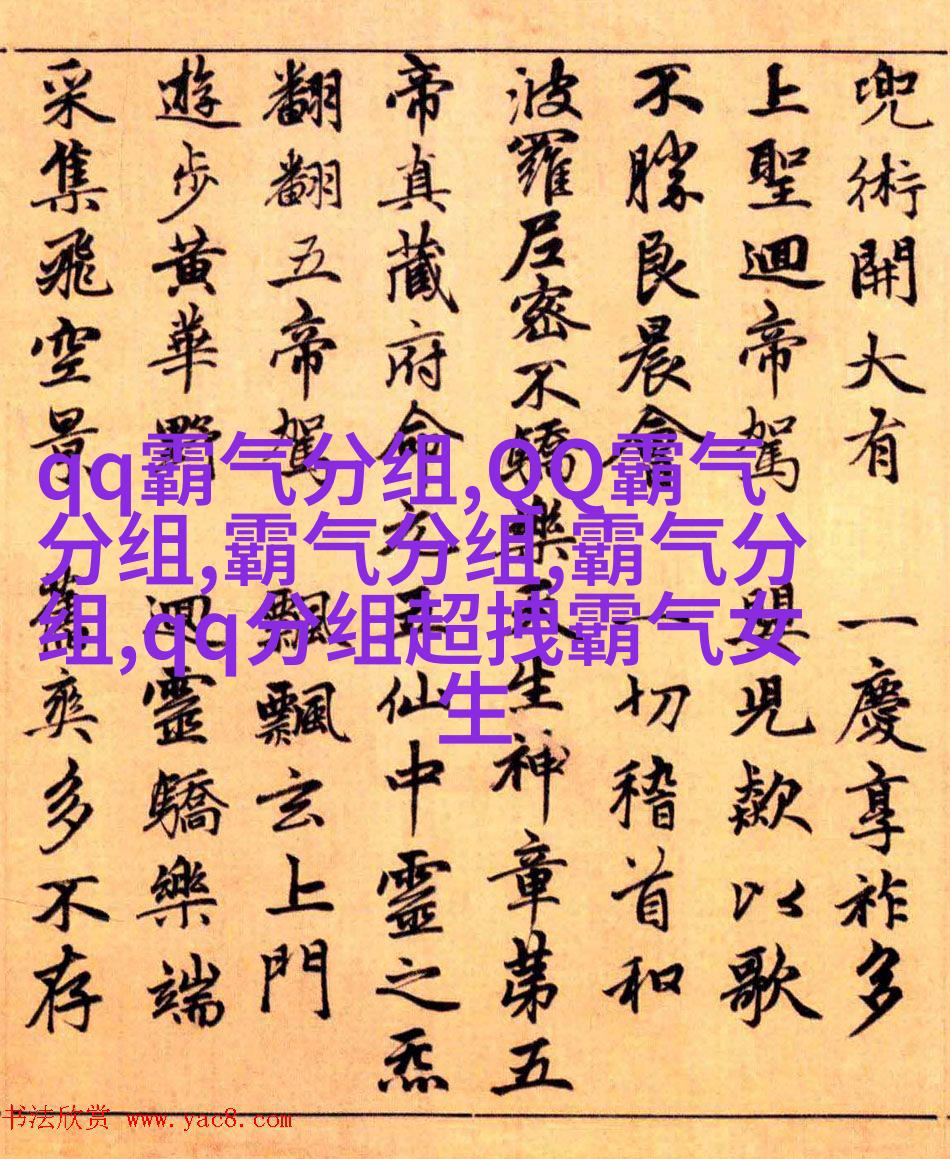 兜術開大有 一慶享祚多
上聖迴帝駕 嬰兒歎以歌
不勝良晨會 一切稽首和
波羅尼密不驕樂天生神章第五
帝真藏府命元王仙中靈之炁
翻翻五帝駕 飄飄玄上門
遊步黃華野 迴靈驕樂端
采集飛空景 爽多不存
qq霸气分组,QQ霸气
分组,霸气分组,霸气分
组,qq分组超拽霸气女
生
书法欣赏 www.yac8.com